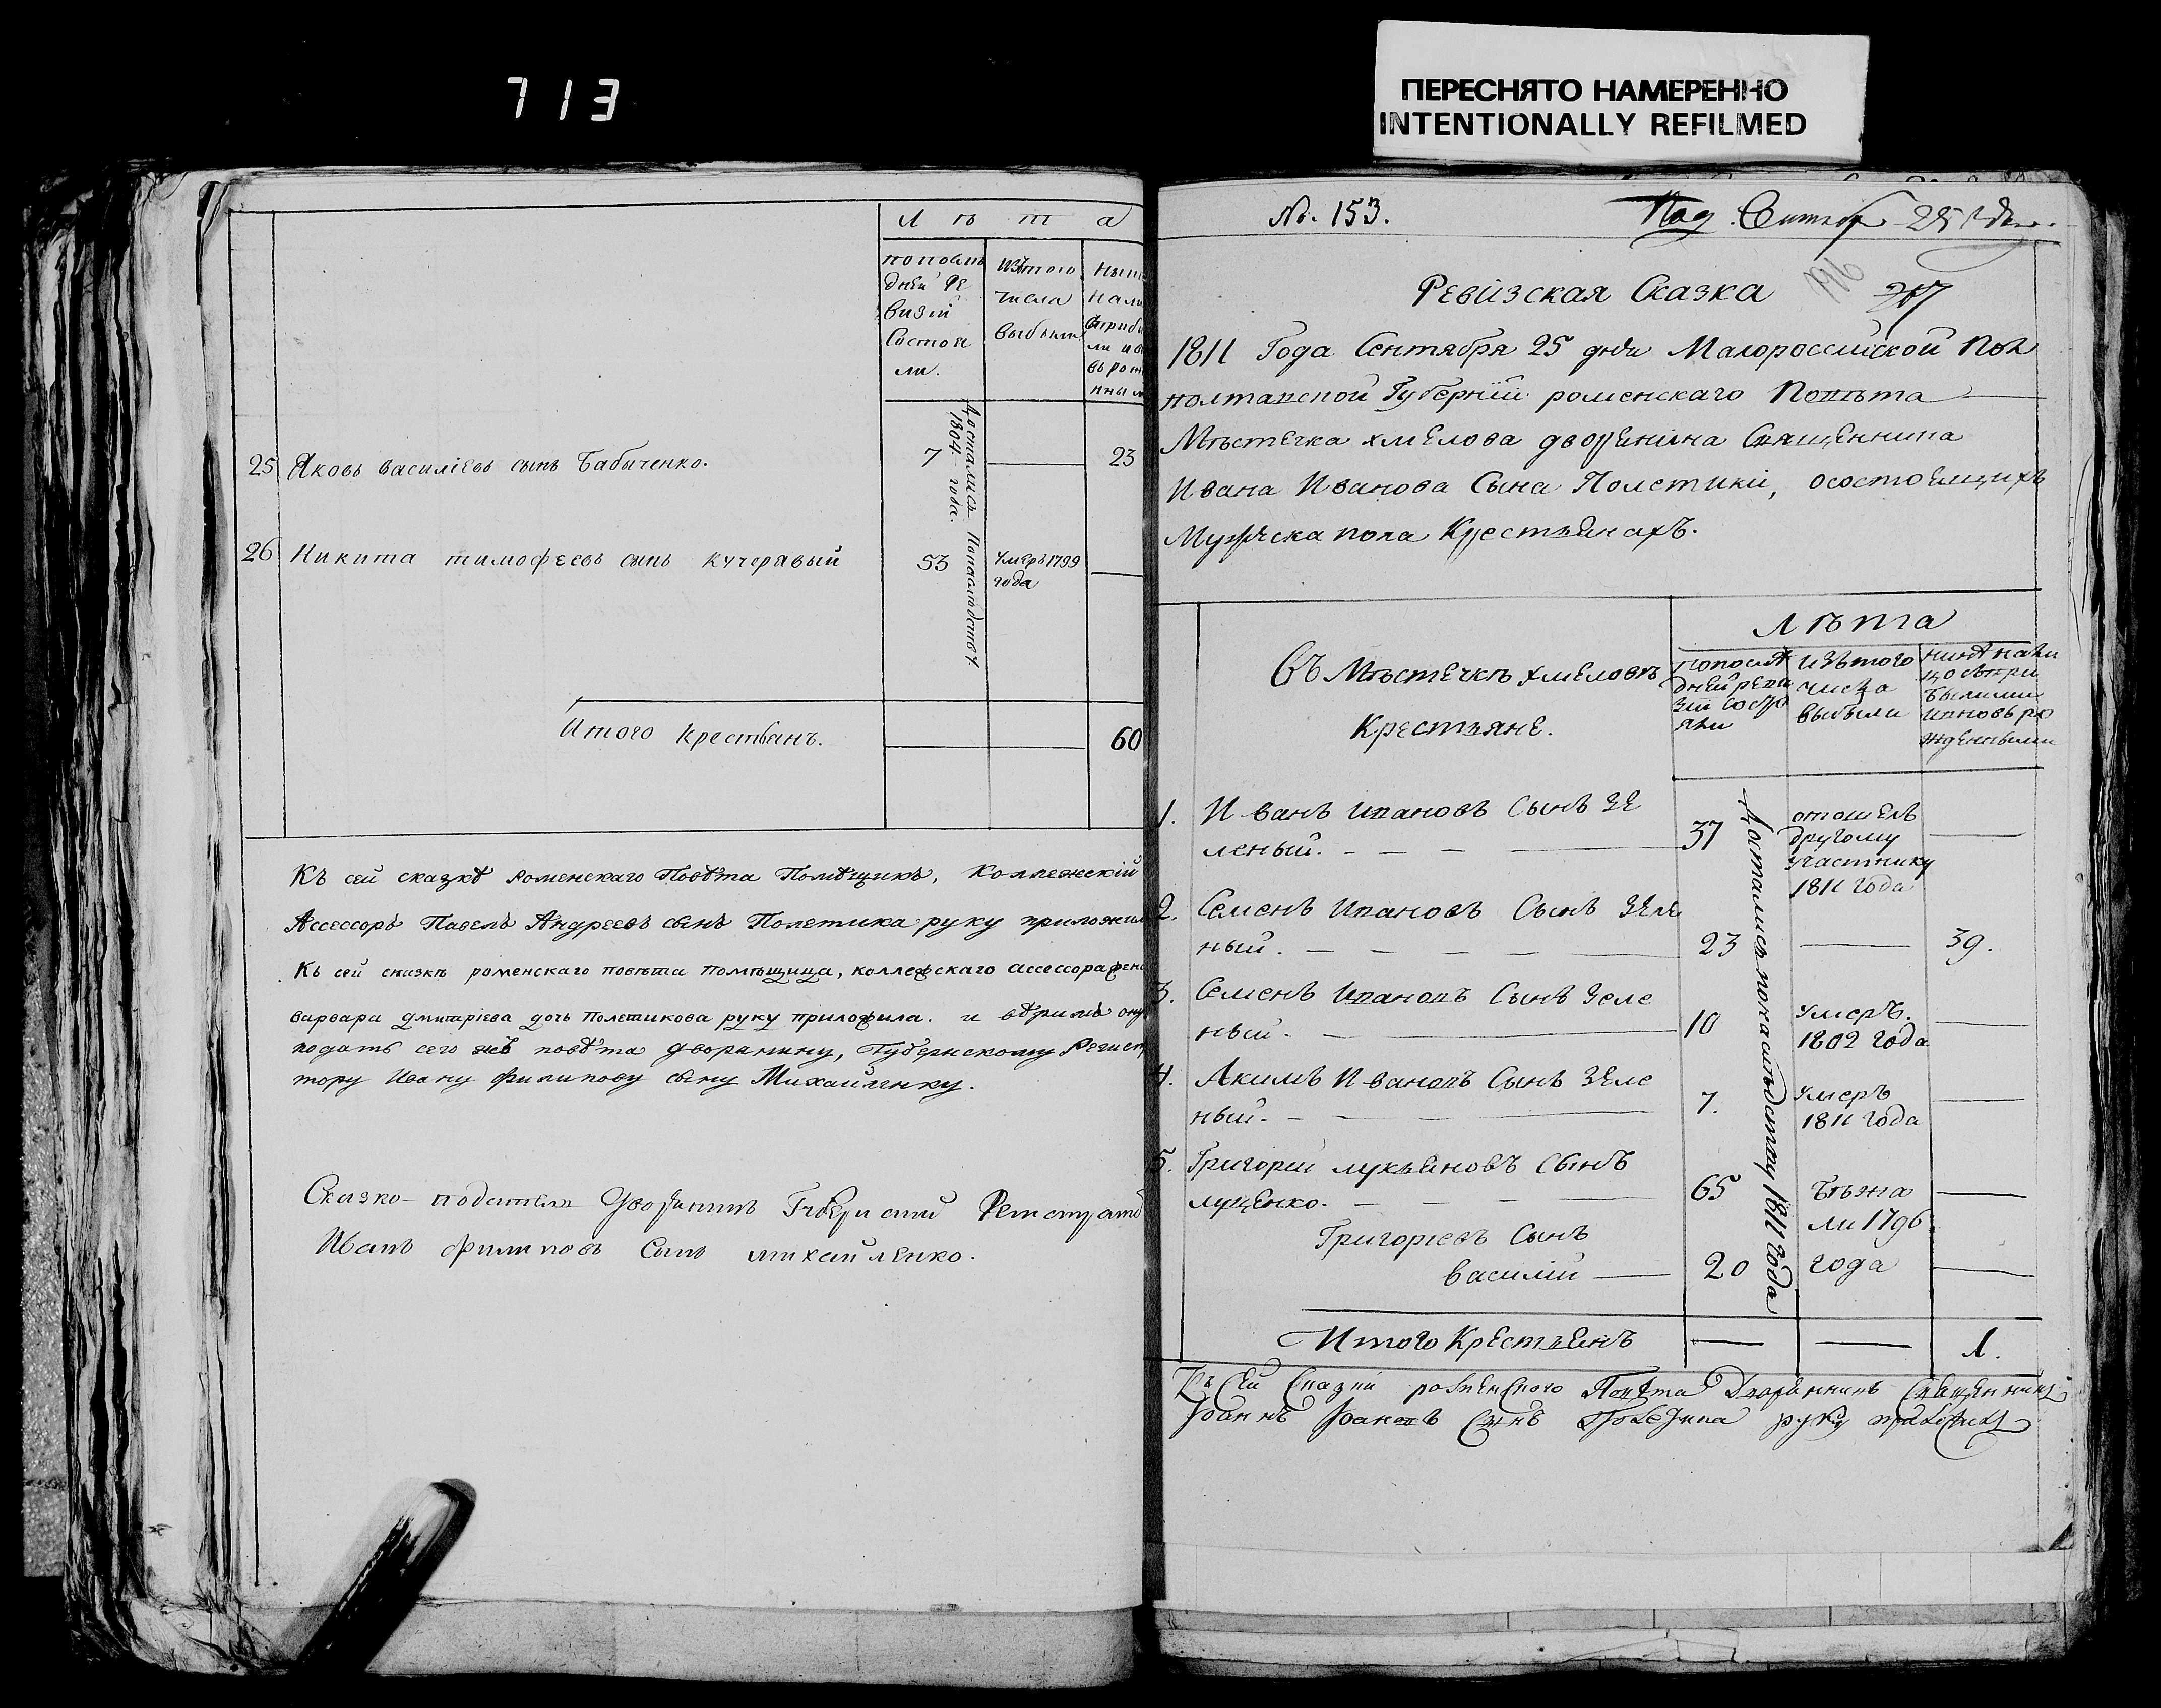 713
ПЕРЕСНЯТО НАМЕРЕННО
INTENTIONALLY REFILMED
Л ѣ т а
попослѣ
дней ре
визіи
Состоя
ли.
Изтого
числа
выбыли
25 Яковъ василіевъ сынъ Бабиченко. 7 — 23
26 Никита тимофеевъ сынъ кучеравый 53 Умеръ 1799
года —
Достались Понаслѣдству
1804 года.
Итого крестьянъ. — — 60
Къ сей сказкѣ роменскаго Повѣта Помѣщикъ, Коллежскій
Ассессоръ Павелъ Андреевъ сынъ Полетика руку приложил
Къ сей сказкѣ роменскаго повѣта помѣщица, коллежскаго ассессора жена
варвара дмитріева дочь Полетикова руку приложила. и вѣримъ ону
подать сего жѣ повѣта дворянину, Губернскому Регист
тору Ивану филипову сыну Михайленку.
Сказко-податель Дворянинъ Губернский Регистрато
Иванъ филиповъ Сынъ михайленко.
No. 153.
Под Сентяб 25 дня.
Ревизская Сказка
1811 Года Сентября 25 дня Малороссийской Пол
полтавской Губерніи роменскаго Повѣта
Мѣстечка хмелова дворенина Священника
Ивана Иванова Сына Полетики, осостоящихъ
Мужеска пола Крестьянахъ.
Лѣта
Въ Мѣстечкѣ хмеловѣ
Крестьяне.
Попослѣ
дней реви
зіи состо
яли
Изъ того
числа
выбыли
нинѣ нали
цо съпри
былими
ивновь ро
жденными
1. Иванъ Ивановъ Сынъ зе
леный. — 37 отошелъ
другому
участнику
1811 года —
2. Семенъ Ивановъ Сынъ зеле
ный. — 23 — 39.
3. Семенъ Ивановъ Сынъ зеле
ный. — 10 Умеръ.
1802 года —
4. Акимъ Ивановъ Сынъ зеле
ный. — 7. Умеръ
1811 года —
5. Григорий лукьяновъ сынъ
луценко. — 65 бѣжа
ли 1796 —
Григориевъ Сынъ
василий — 20 года —
Достались понаслѣдству 1811 года
Итого Крестьянъ — — 1.
Къ Сей Сказки роменского Повѣта Дворянинъ Священникъ
Іоаннъ Іоановъ Сынъ Полетика руку приложилъ